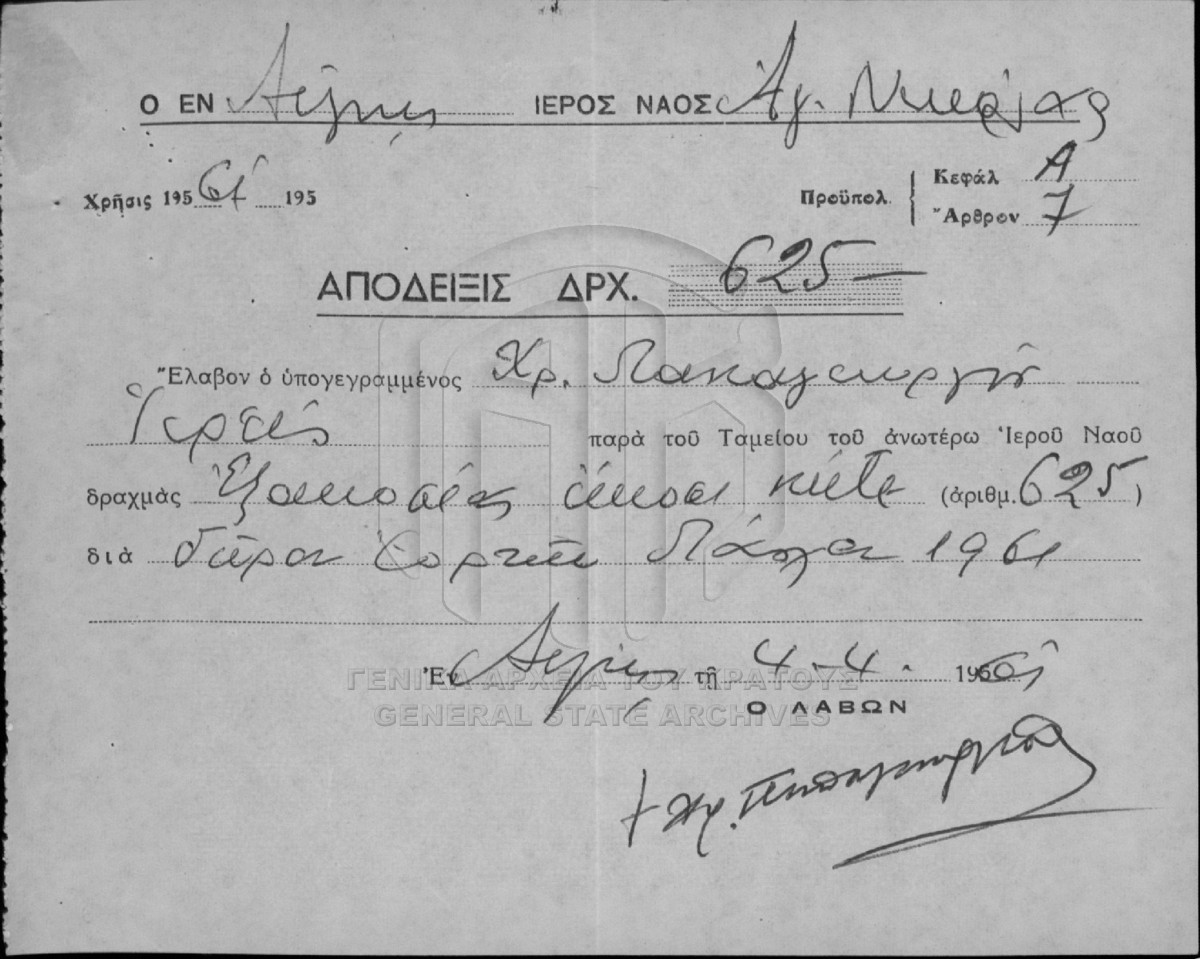 Ο ΕΝ Αίγίνης ΙΕΡΟΣ ΝΑΟΣ Αγ.
Χρῆσις 195 61 195
Προϋπολ. Κεφάλ Α
Ἄρθρον 7
ΑΠΟΔΕΙΞΙΣ ΔΡΧ. 625—
Ἔλαβον ὁ ὑπογεγραμμένος Χρ. Παπαγεωργίου
Ἱερεύς παρὰ τοῦ Ταμείου τοῦ ἀνωτέρω Ἱεροῦ Ναοῦ
δραχμὰς Ἑξακοσίας εἴκοσι πέντε (ἀριθμ. 625)
διὰ δῶρον ἑορτῶν Πάσχα 1961
Ἐν τῇ 4-4. 1961
Ο ΛΑΒΩΝ
+ Χρ. Παπαγεωργίου
ΓΕΝΙΚΑ ΑΡΧΕΙΑ ΤΟΥ ΚΡΑΤΟΥΣ
GENERAL STATE ARCHIVES